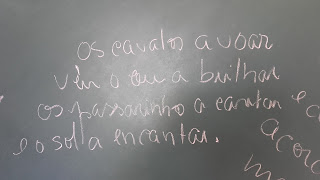 os cavalos a voar
vên o céu a brilhar
os passarinho a cantar e
e o sol a encantar.
acord